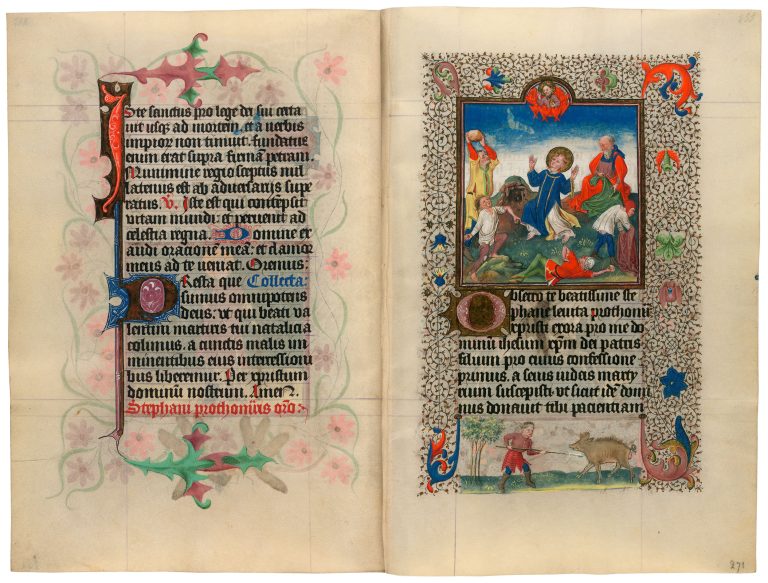 Iste sanctus pro lege dei sui certa
uit usqz ad mortem. et a uerbis
impior non timuit. fundatus
enim erat supra firmam petram.
Munimine regio septus nul
latenus est ab aduersarijs supe
ratus V. Iste est qui contempsit
vitam mundi: et peruenit ad
celestia regna. Domine ex
audi orationem meam: et clamor
meus ad te ueniat. Oremus:
Presta que Collecta:
sumus omnipotens
deus: vt qui beati va
lentini martiris tui natalicia
colimus, a cunctis malis im
minentibus eius intercessioni
bus liberemur. Per xpristum
dominum nostrum. Amen.
Stephani prothomris oro:
Obsecro te beatissime ste
phane leuita prothomr
xpristi exora pro me do
minum ihesum xpm dei patris
filium pro cuius confessione
primus, a seuis iudeis marty
rium suscepisti: vt sicut idem domi
nus donauit tibi pacientiam
271